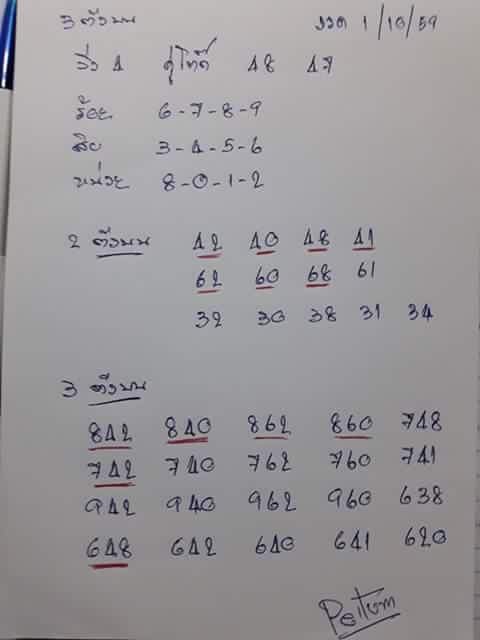 3 ตัวบน งวด 1/10/59
วิ่ง 4 คู่โต๊ด 48 47
ร้อย 6-7-8-9
สิบ 3-4-5-6
หน่วย 8-0-1-2
2 ตัวบน 42 40 48 41
62 60 68 61
32 30 38 31 34
3 ตัวบน
842 840 862 860 748
742 740 762 760 741
942 940 962 960 638
648 642 640 641 620